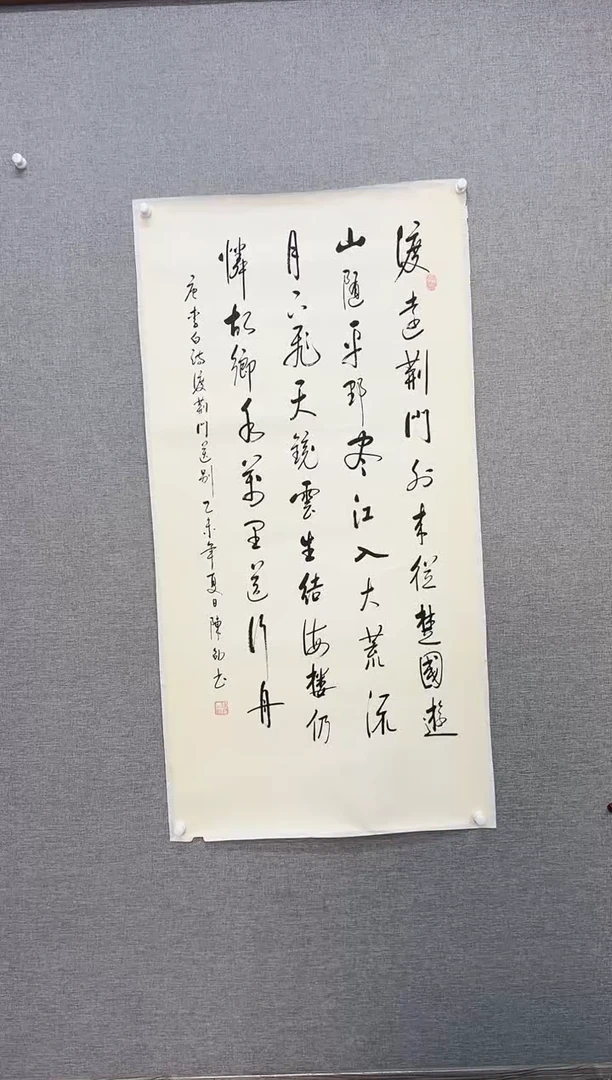 渡遠荆門外来從楚國遊
山随平野尽江入大荒流
月下飛天鏡雲生结海楼仍
憐故鄉水萬里送行舟
唐李白诗渡荆門送别 乙未年夏日陳书